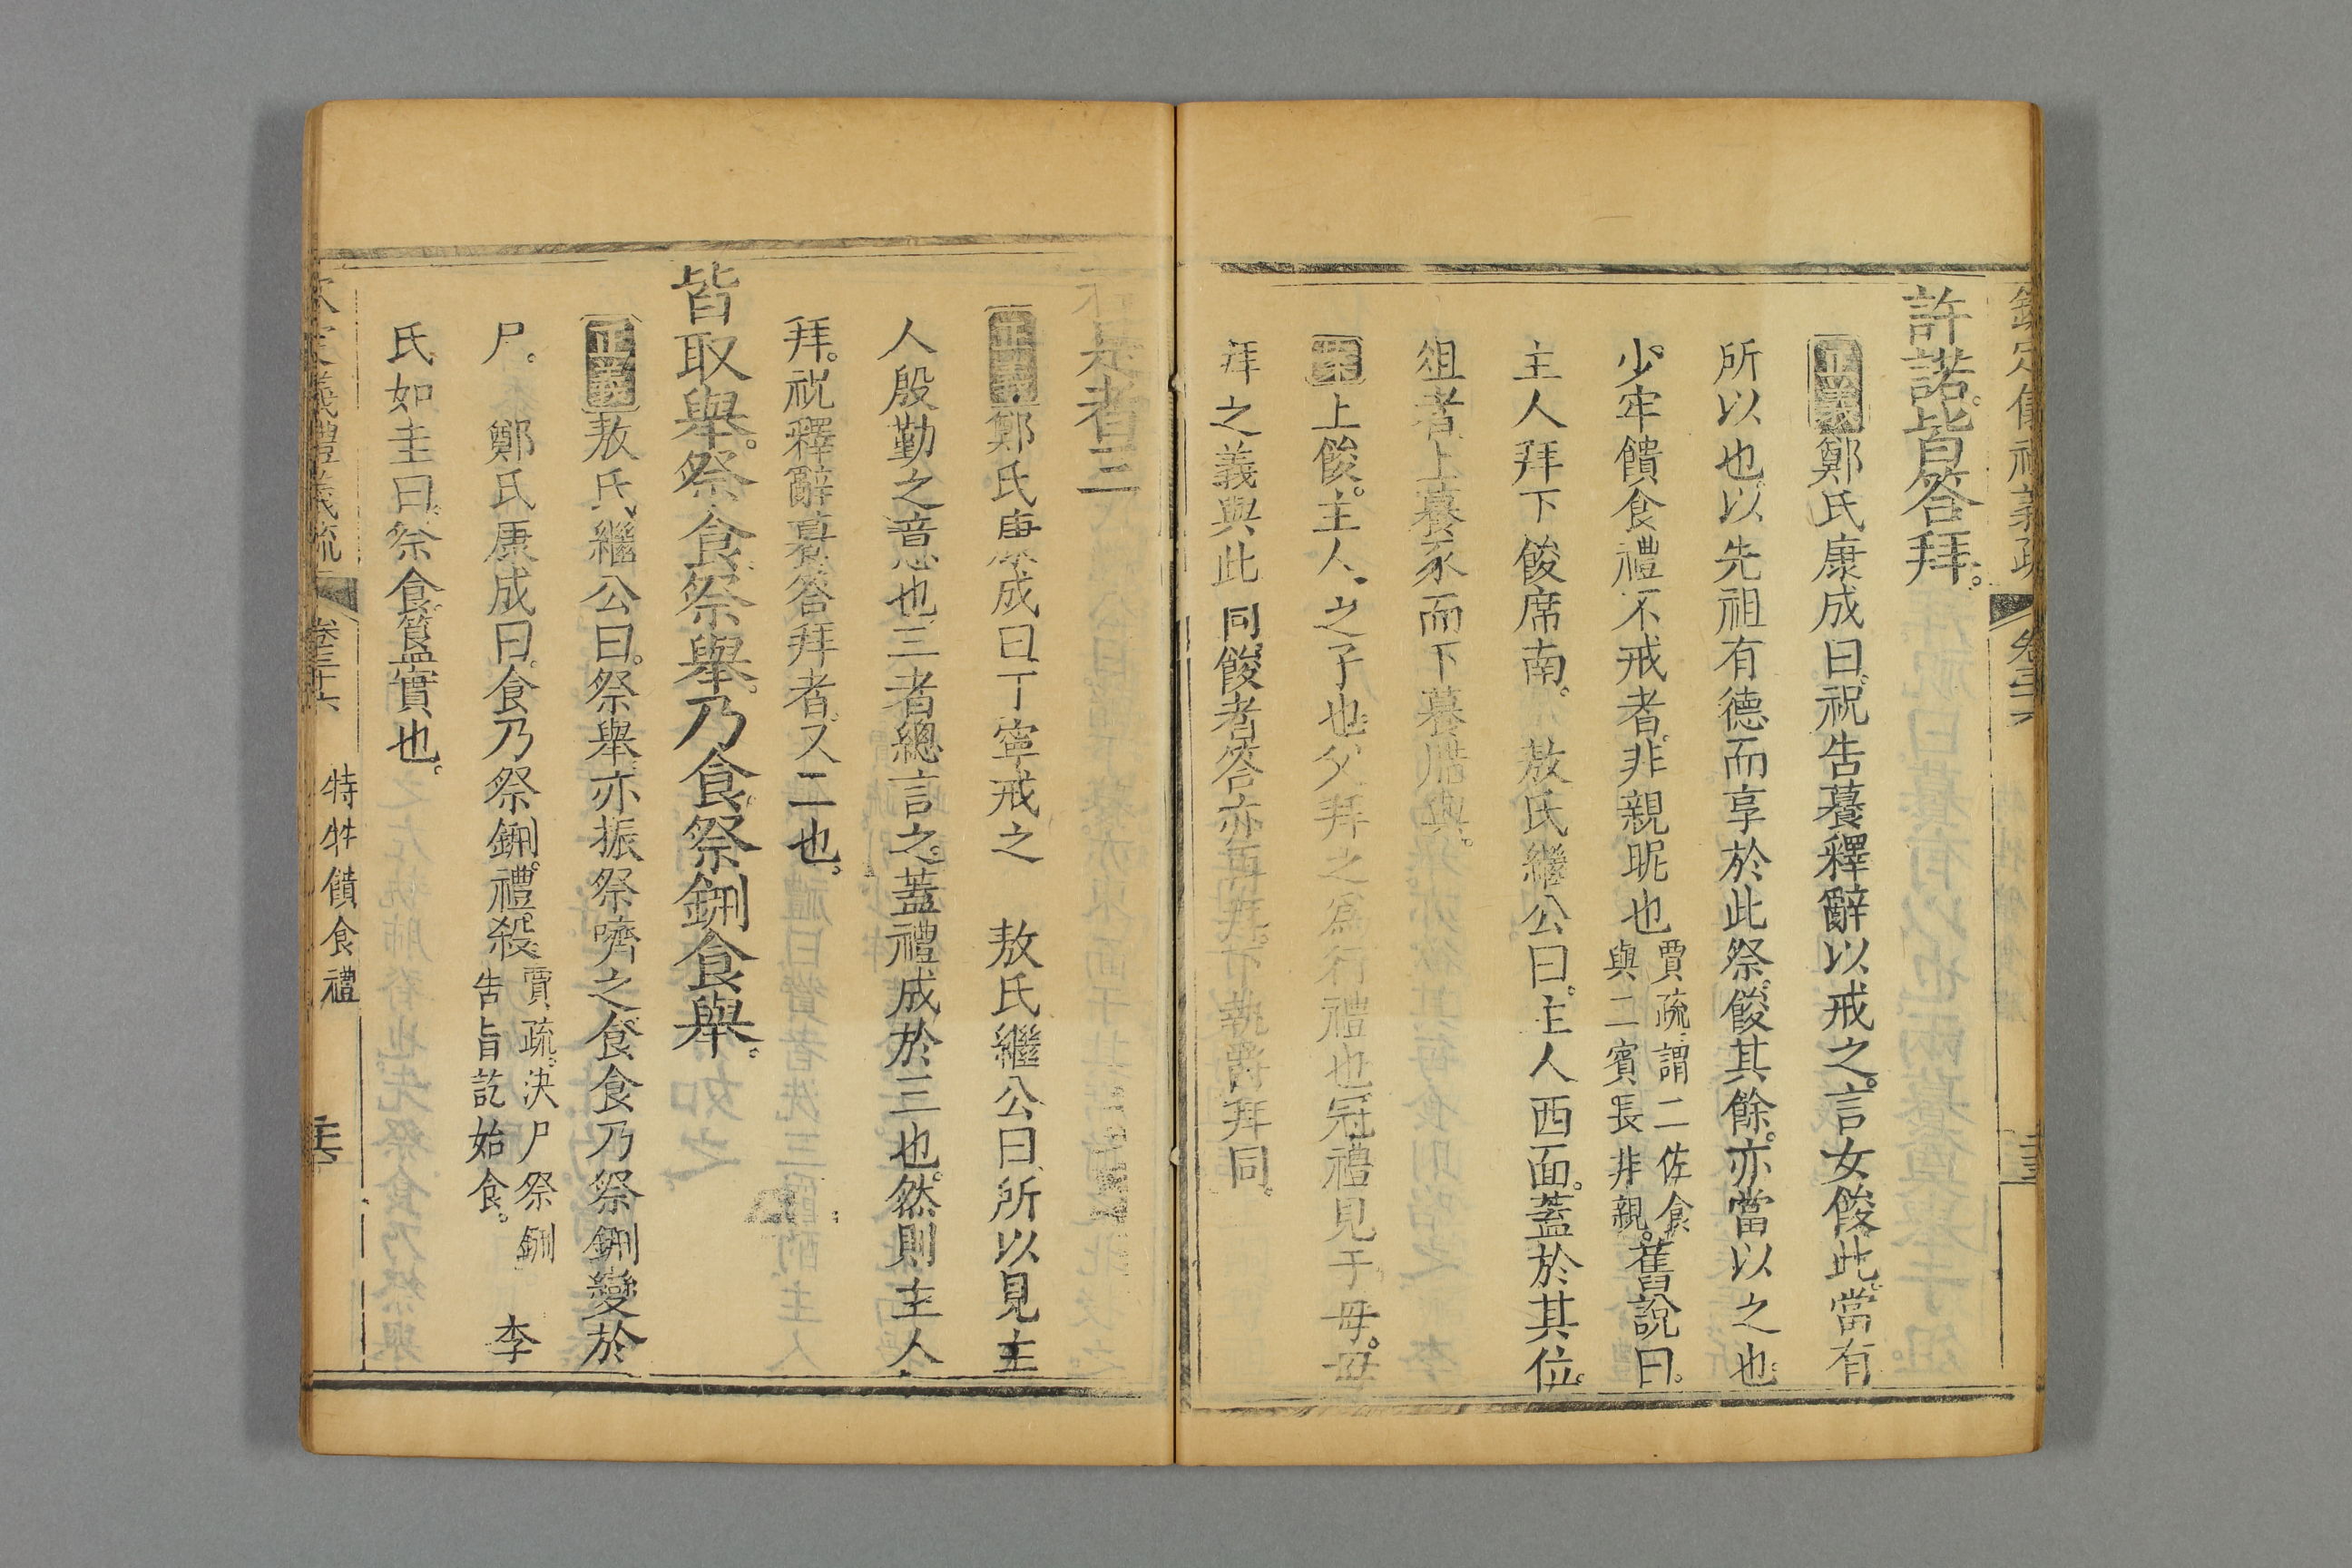 欽定儀禮義疏 卷三十六
許諾皆答拜。
正義鄭氏康成曰。祝告䕩釋辭以戒之。言女餕此。當有
所以也。以先祖有德而享於此祭。餕其餘。亦當以之也
少牢饋食禮不戒者。非親昵也賈疏。謂二佐食
與二賓長非親。舊說曰。
主人拜下餕席南。 敖氏繼公曰。主人西面。蓋於其位。
俎者上䕩豕而下䕩腊與。
案上餕。主人之子也。父拜之爲行禮也。冠禮見于母。母
拜之義與此同。餕者答亦再拜。下執爵拜同。
若是者三
正義鄭氏康成曰丁寧戒之 敖氏繼公曰所以見主
人殷勤之意也。三者總言之。蓋禮成於三也。然則主人
拜。祝釋辭。䕩答拜者。又二也。
皆取舉。祭食。祭舉。乃食。祭鉶。食舉。
正義敖氏繼公曰。祭舉亦振祭嚌之。食食乃祭鉶。變於
尸。 鄭氏康成曰。食乃祭鉶。禮殺。賈疏。決尸祭鉶
告旨訖始食。 李
氏如圭曰。祭食。簋實也。
欽定儀禮義疏 卷三十六 特牲饋食禮